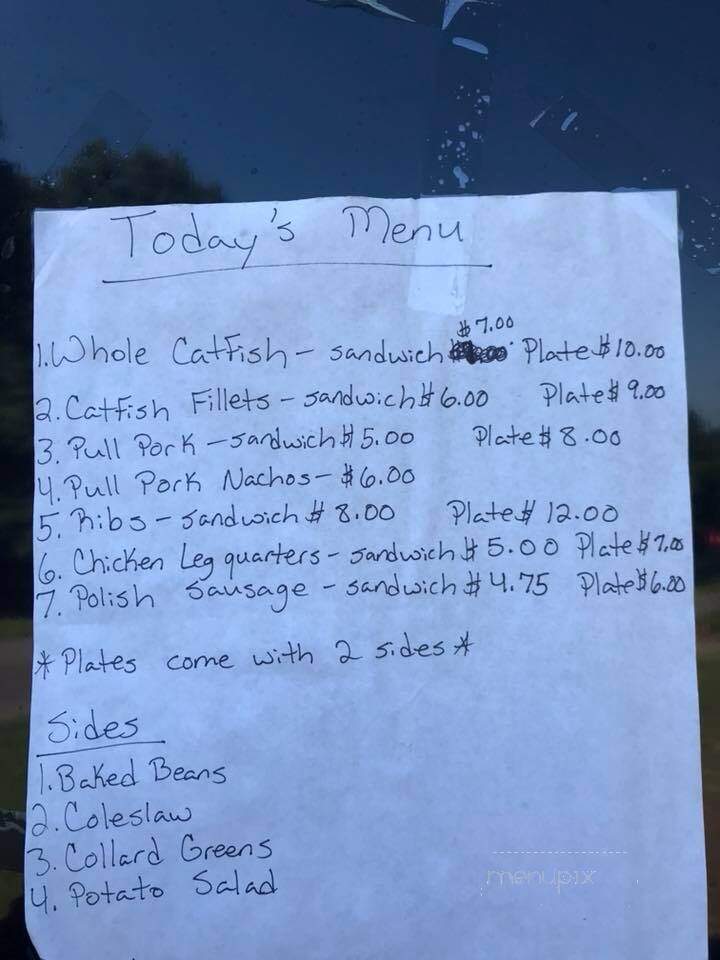 Today's Menu
$7.00
1. Whole Catfish - sandwich Plate $10.00
2. Catfish Fillets - sandwich $6.00 Plate $9.00
3. Pull Pork - sandwich $5.00 Plate $8.00
4. Pull Pork Nachos - $6.00
5. Ribs - sandwich $8.00 Plate $12.00
6. Chicken Leg quarters - sandwich $5.00 Plate $7.00
7. Polish Sausage - sandwich $4.75 Plate $6.00
*Plates come with 2 sides*
Sides
1. Baked Beans
2. Coleslaw
3. Collard Greens
4. Potato Salad
menupix